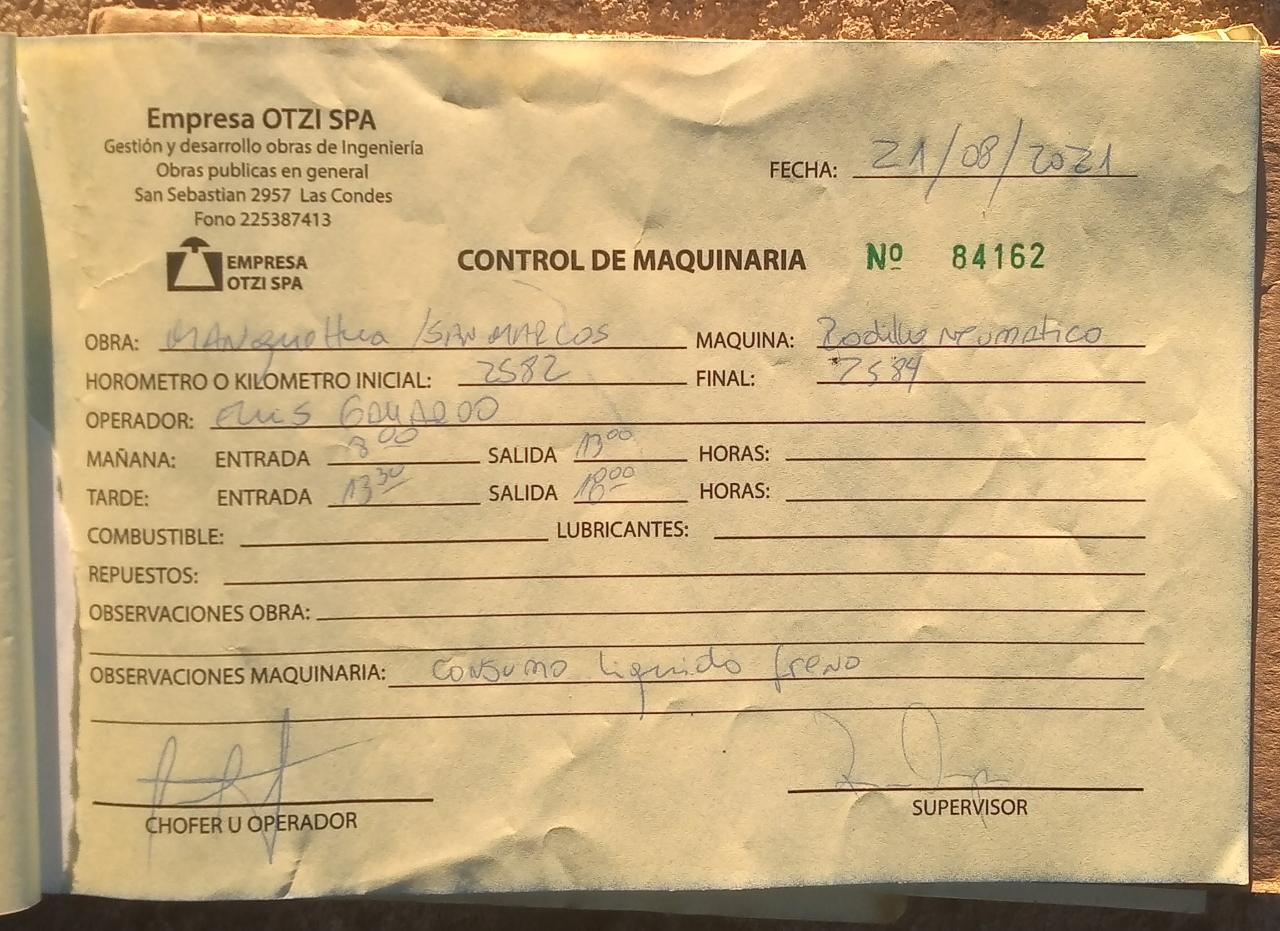 Empresa OTZI SPA
Gestión y desarrollo obras de Ingeniería
Obras publicas en general
San Sebastian 2957 Las Condes
Fono 225387413
FECHA: 21/08/2021
EMPRESA
OTZI SPA
CONTROL DE MAQUINARIA Nº 84162
OBRA: /SAN MARCOS MAQUINA: Rodillo Neumatico
HOROMETRO O KILOMETRO INICIAL: 2582 FINAL: 2584
OPERADOR:
MAÑANA: ENTRADA 8:00 SALIDA 13:00 HORAS:
TARDE: ENTRADA 13:30 SALIDA 18:00 HORAS:
COMBUSTIBLE: LUBRICANTES:
REPUESTOS:
OBSERVACIONES OBRA:
OBSERVACIONES MAQUINARIA: Consumo liquido freno
CHOFER U OPERADOR SUPERVISOR